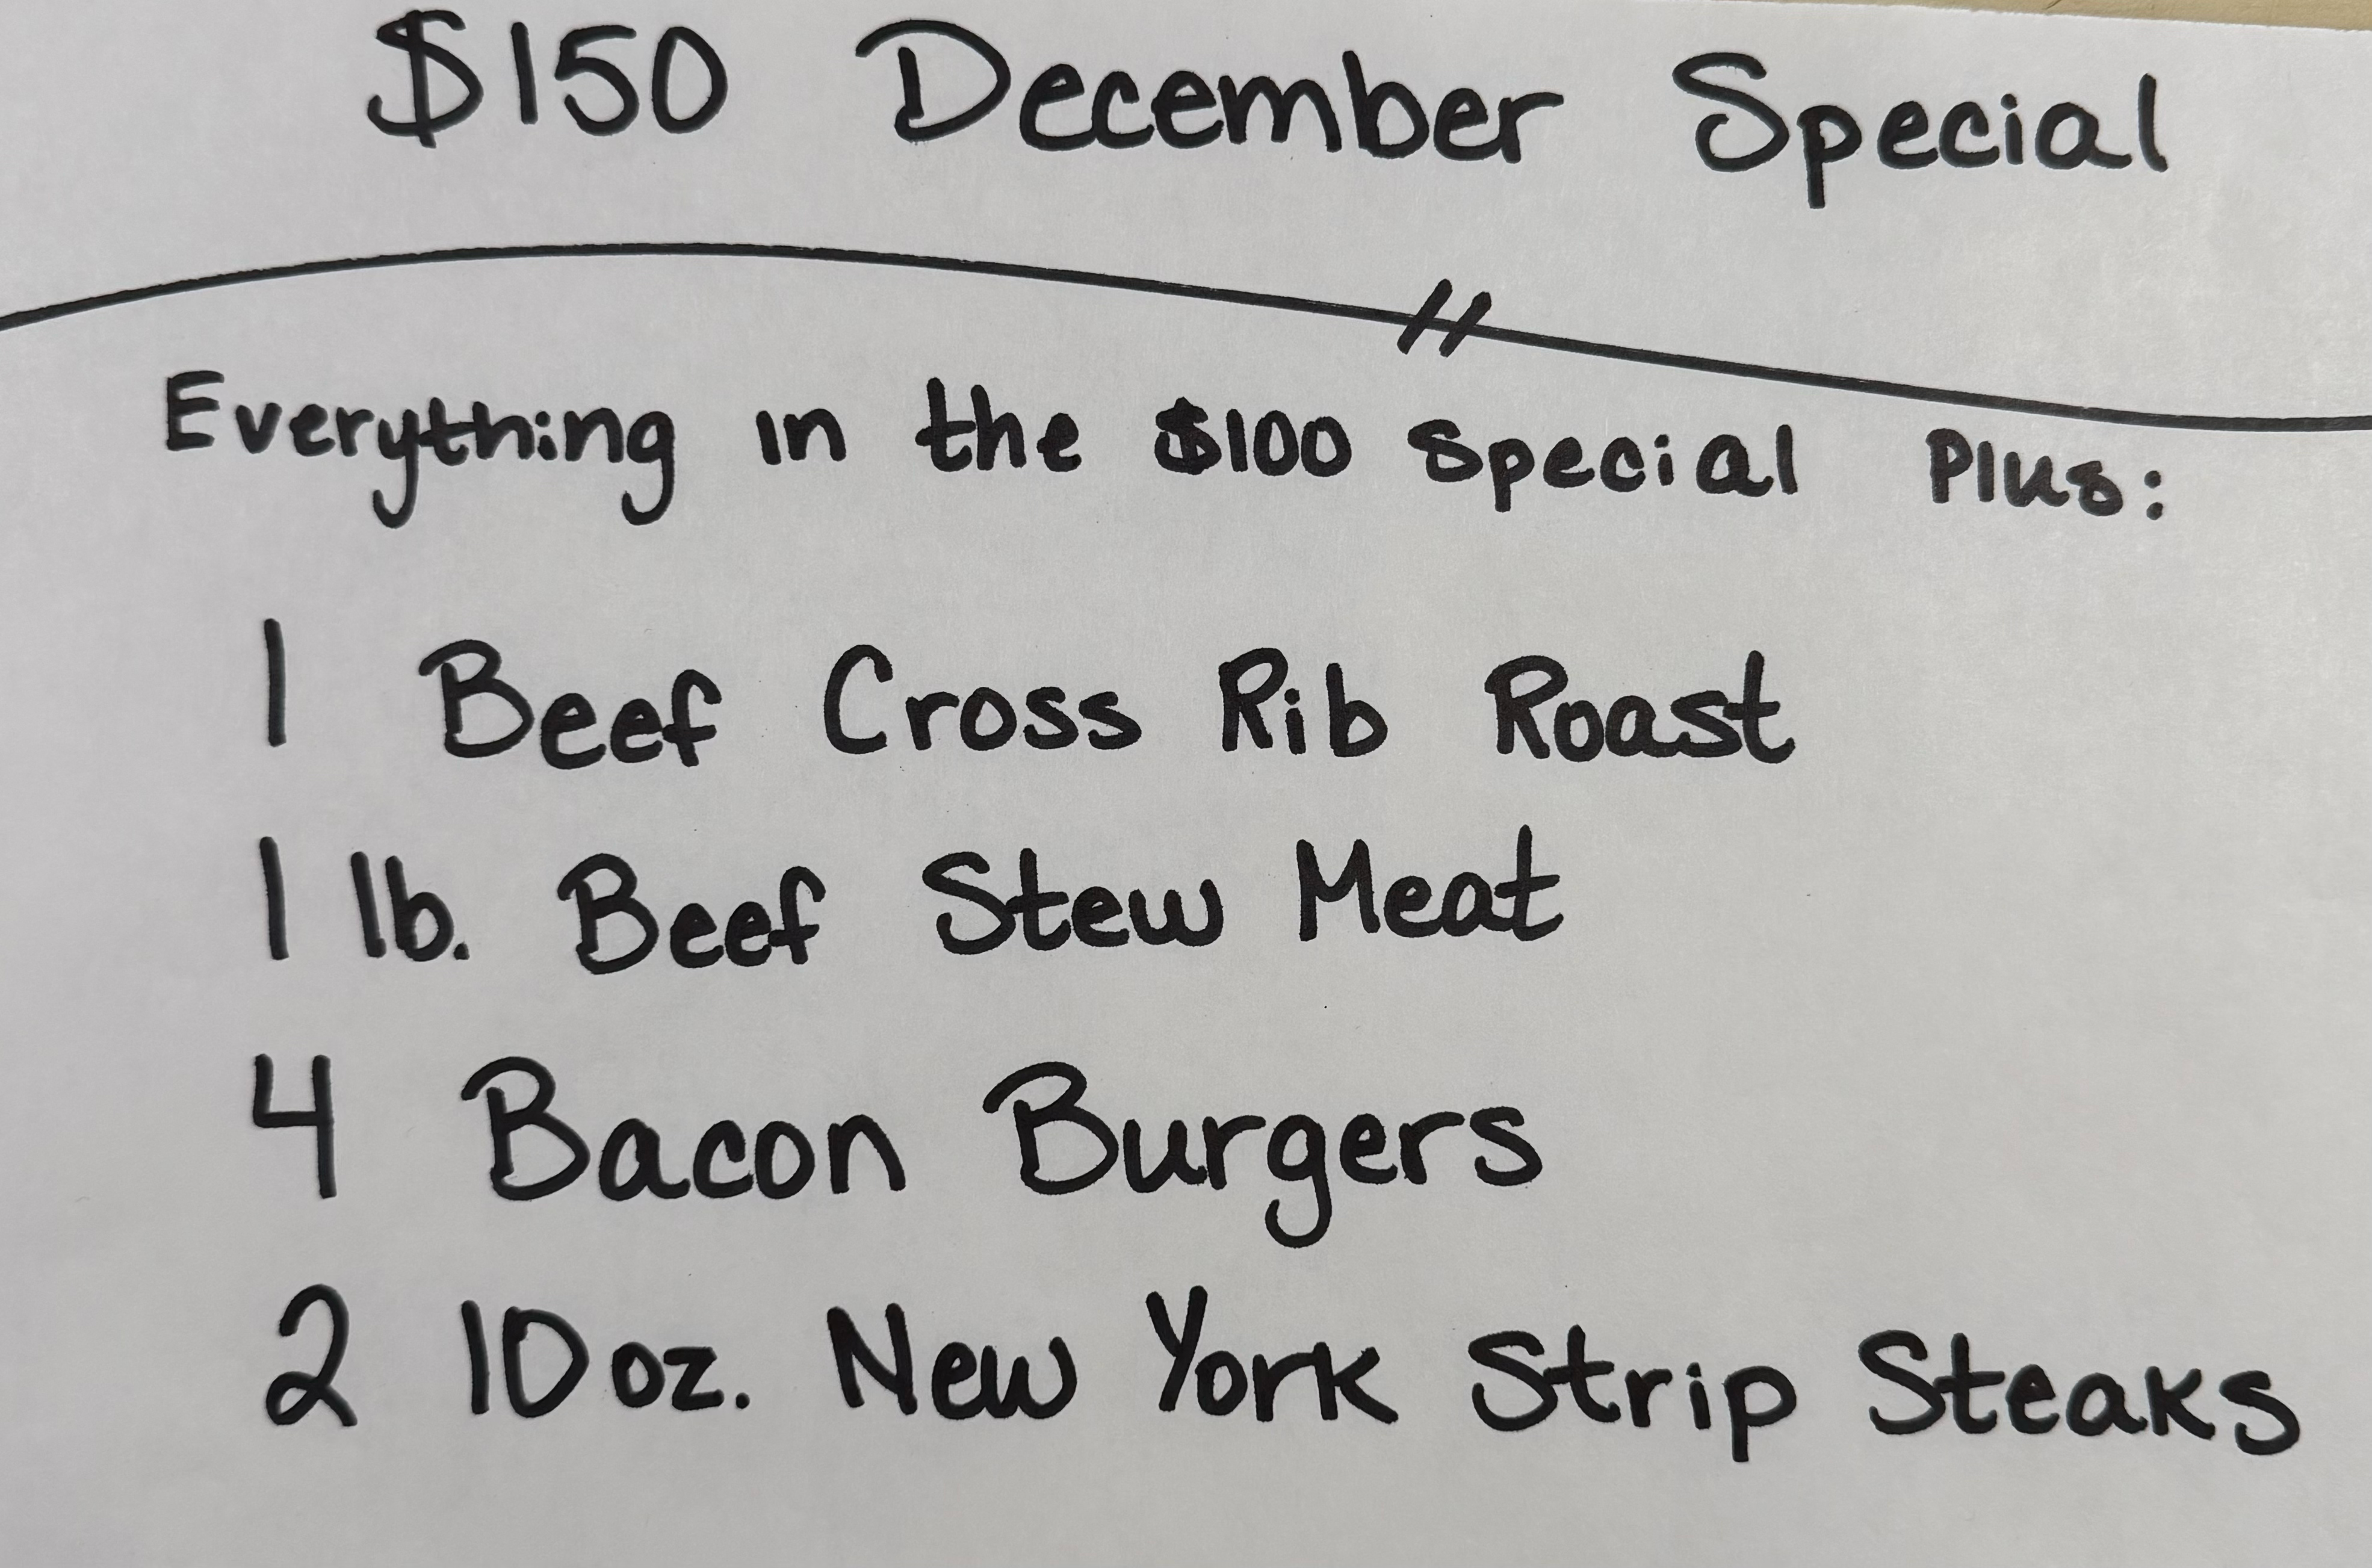 $150 December Special
Everything in the $100 Special Plus:
1 Beef Cross Rib Roast
1 lb. Beef Stew Meat
4 Bacon Burgers
2 10 oz. New York Strip Steaks